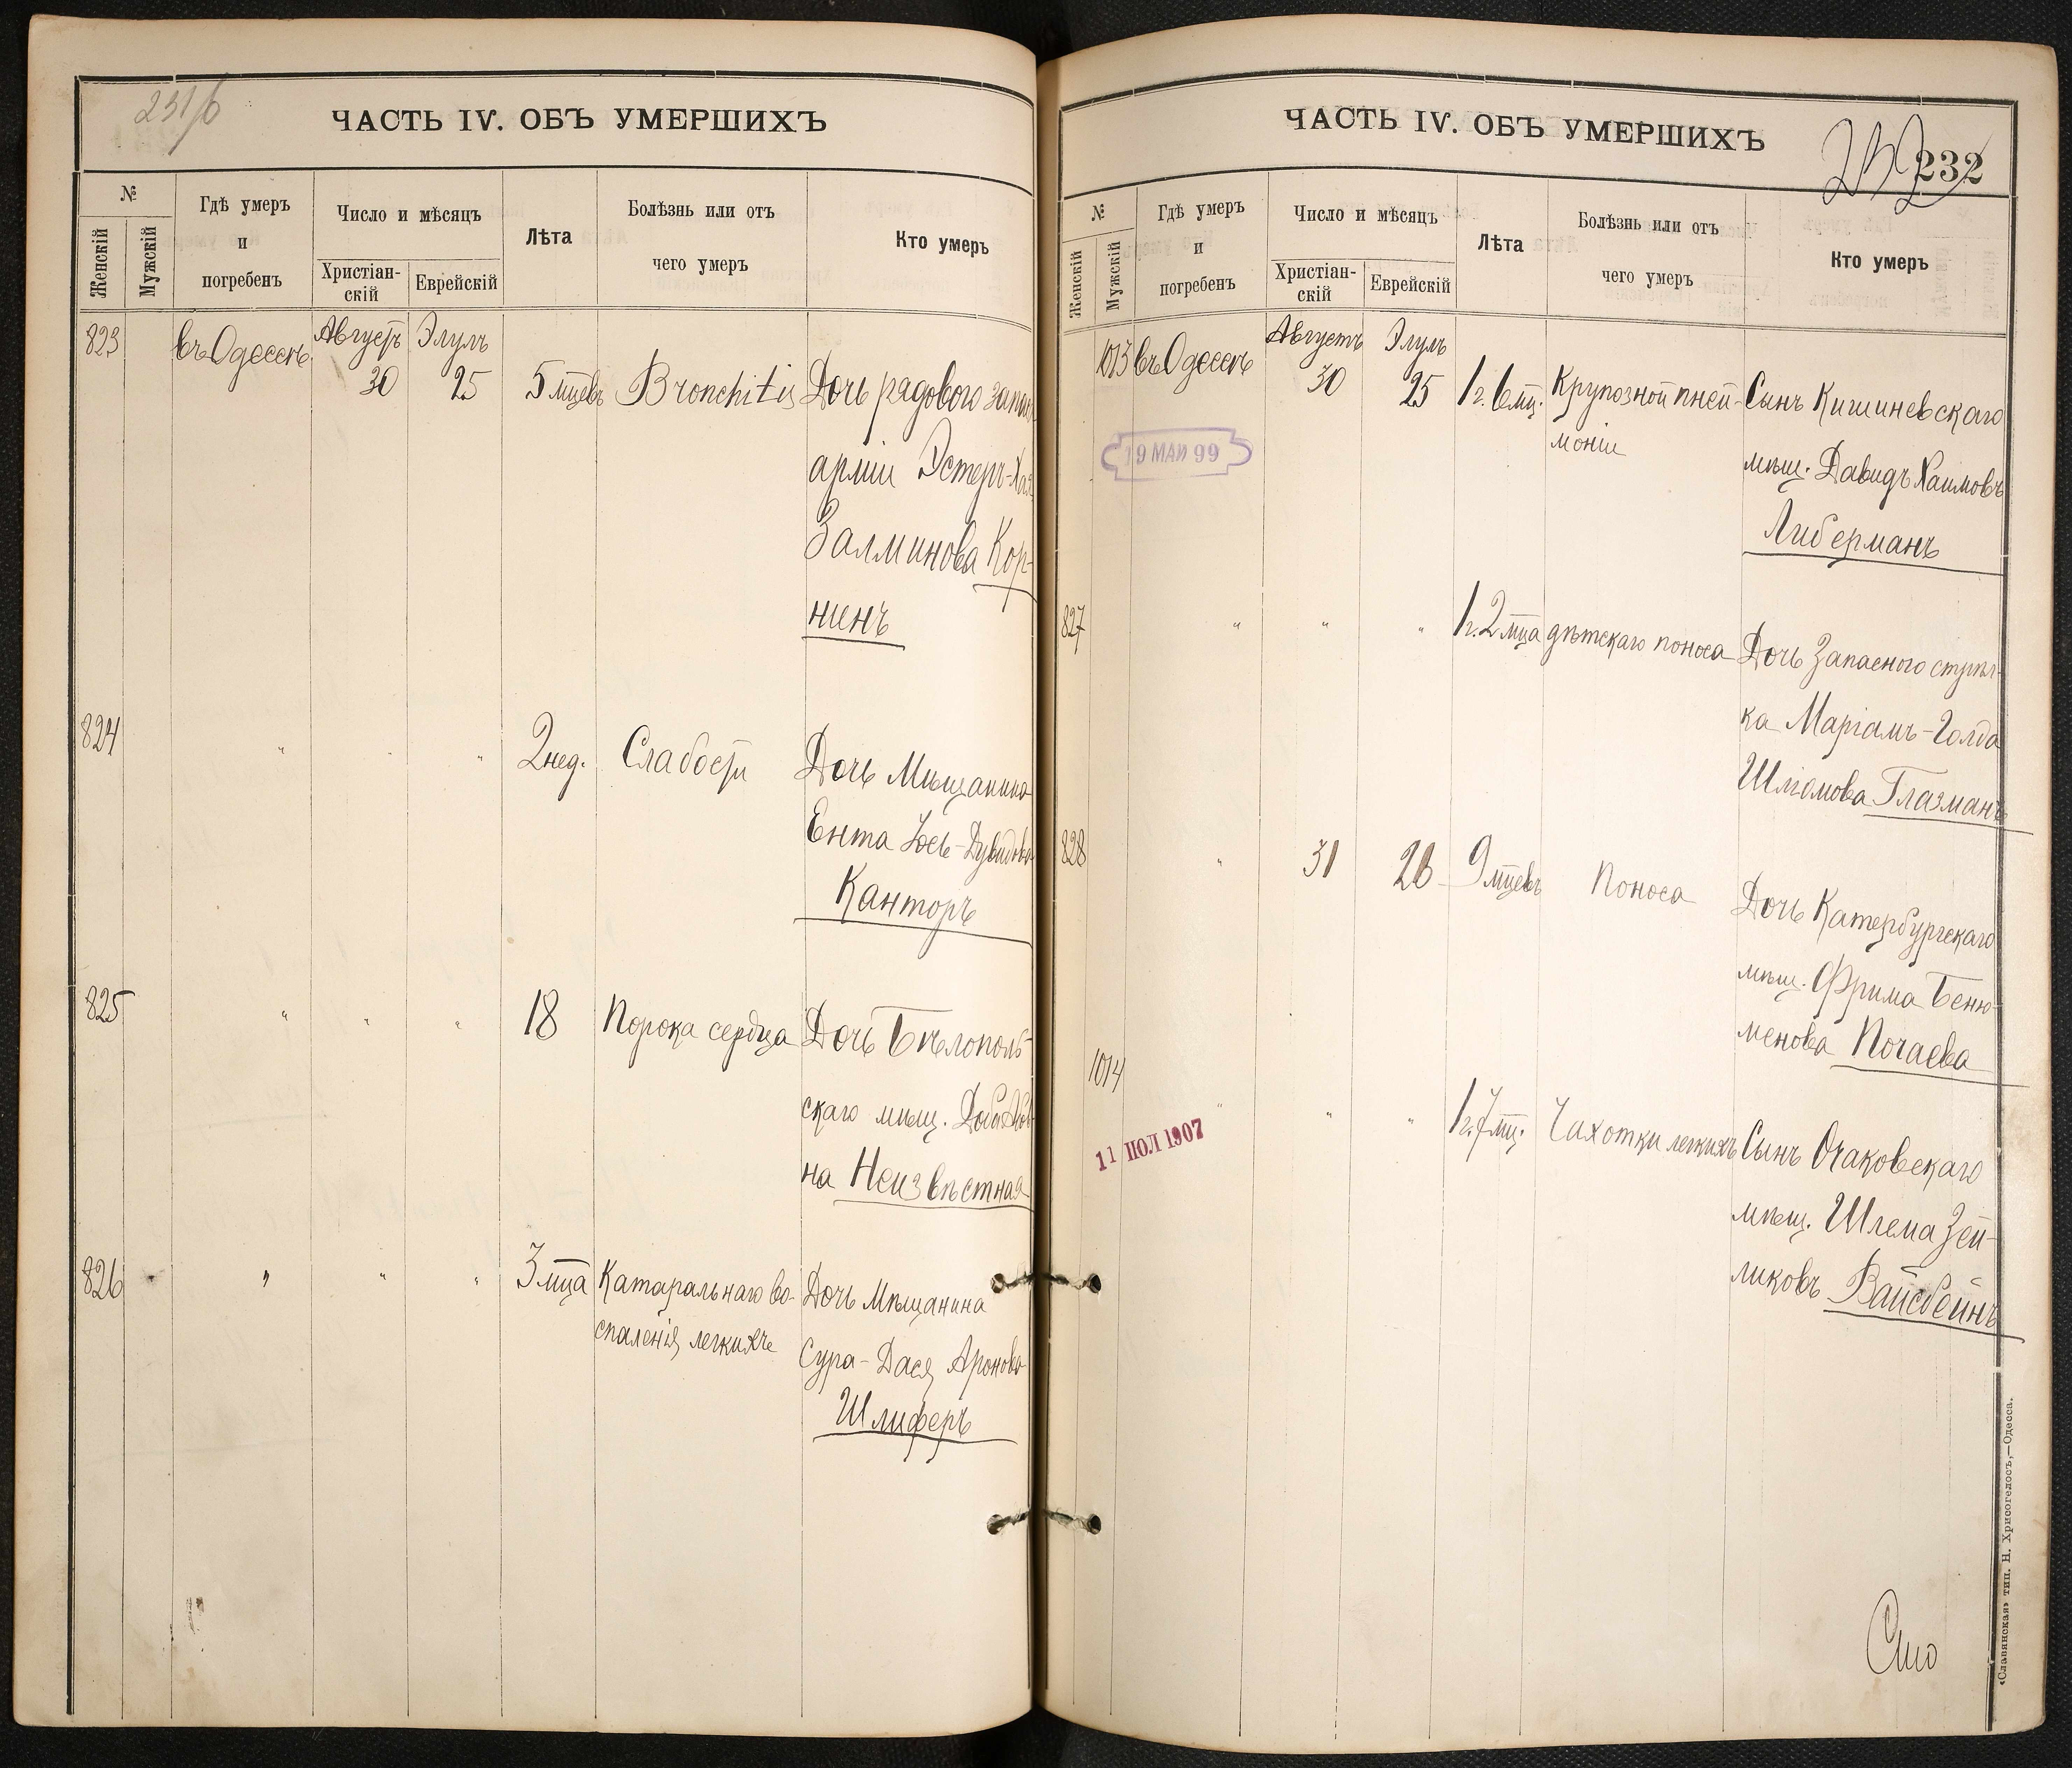 231/б
ЧАСТЬ IV. ОБЪ УМЕРШИХЪ
№
Женскій
Мужскій
Гдѣ умеръ
и
погребенъ
Число и мѣсяцъ
Христіан-
скій
Еврейскій
Лѣта
Болѣзнь или отъ
чего умеръ
Кто умеръ
823 въ Одессѣ Августъ Элулъ
30 25 5 мцевъ Bronchitis Дочь рядового запас
арміи Эстеръ-Хая
Залминова Кор-
нинъ
824 " " " 2 нед. Слабости Дочь Мѣщанина
Ента Іось-Дувидова
Канторъ
825 " " " 18 Порока сердца Дочь Бѣлополь-
скаго мѣщ.
на Неизвѣстная
826 " " " 3 мца Катаральнаго во- Дочь Мѣщанина
спаленія легкихъ
Сура-Дася Аронова
Шлиферъ
ЧАСТЬ IV. ОБЪ УМЕРШИХЪ
232
232
№
Женскій
Мужскій
Гдѣ умеръ
и
погребенъ
Число и мѣсяцъ
Христіан-
скій
Еврейскій
Лѣта
Болѣзнь или отъ
чего умеръ
Кто умеръ
1013 въ Одессѣ Августъ Элулъ
30 25 1 г. 6 мц. Крупозной пней- Сынъ Кишиневскаго
моніи
19 МАИ 99
мѣщ. Давидъ Хаимовъ
Либерманъ
827 " " " 1 г. 2 мца дѣтскаго поноса Дочь Запасного стрѣл-
ка Маріамъ-Голда
Шліомова Глазманъ
828 " 31 26 9 мцевъ Поноса Дочь Катербургскаго
мѣщ. Фрима Беню-
менова Почаева
1014 " " " 1 г. 7 мц. Чахотки легкихъ Сынъ Очаковскаго
11 ІЮЛ 1907
мѣщ. Шлема Зей-
ликовъ Вайсбейнъ
Сто
«Славянская» тип. Н. Хрисогелосъ,—Одесса.